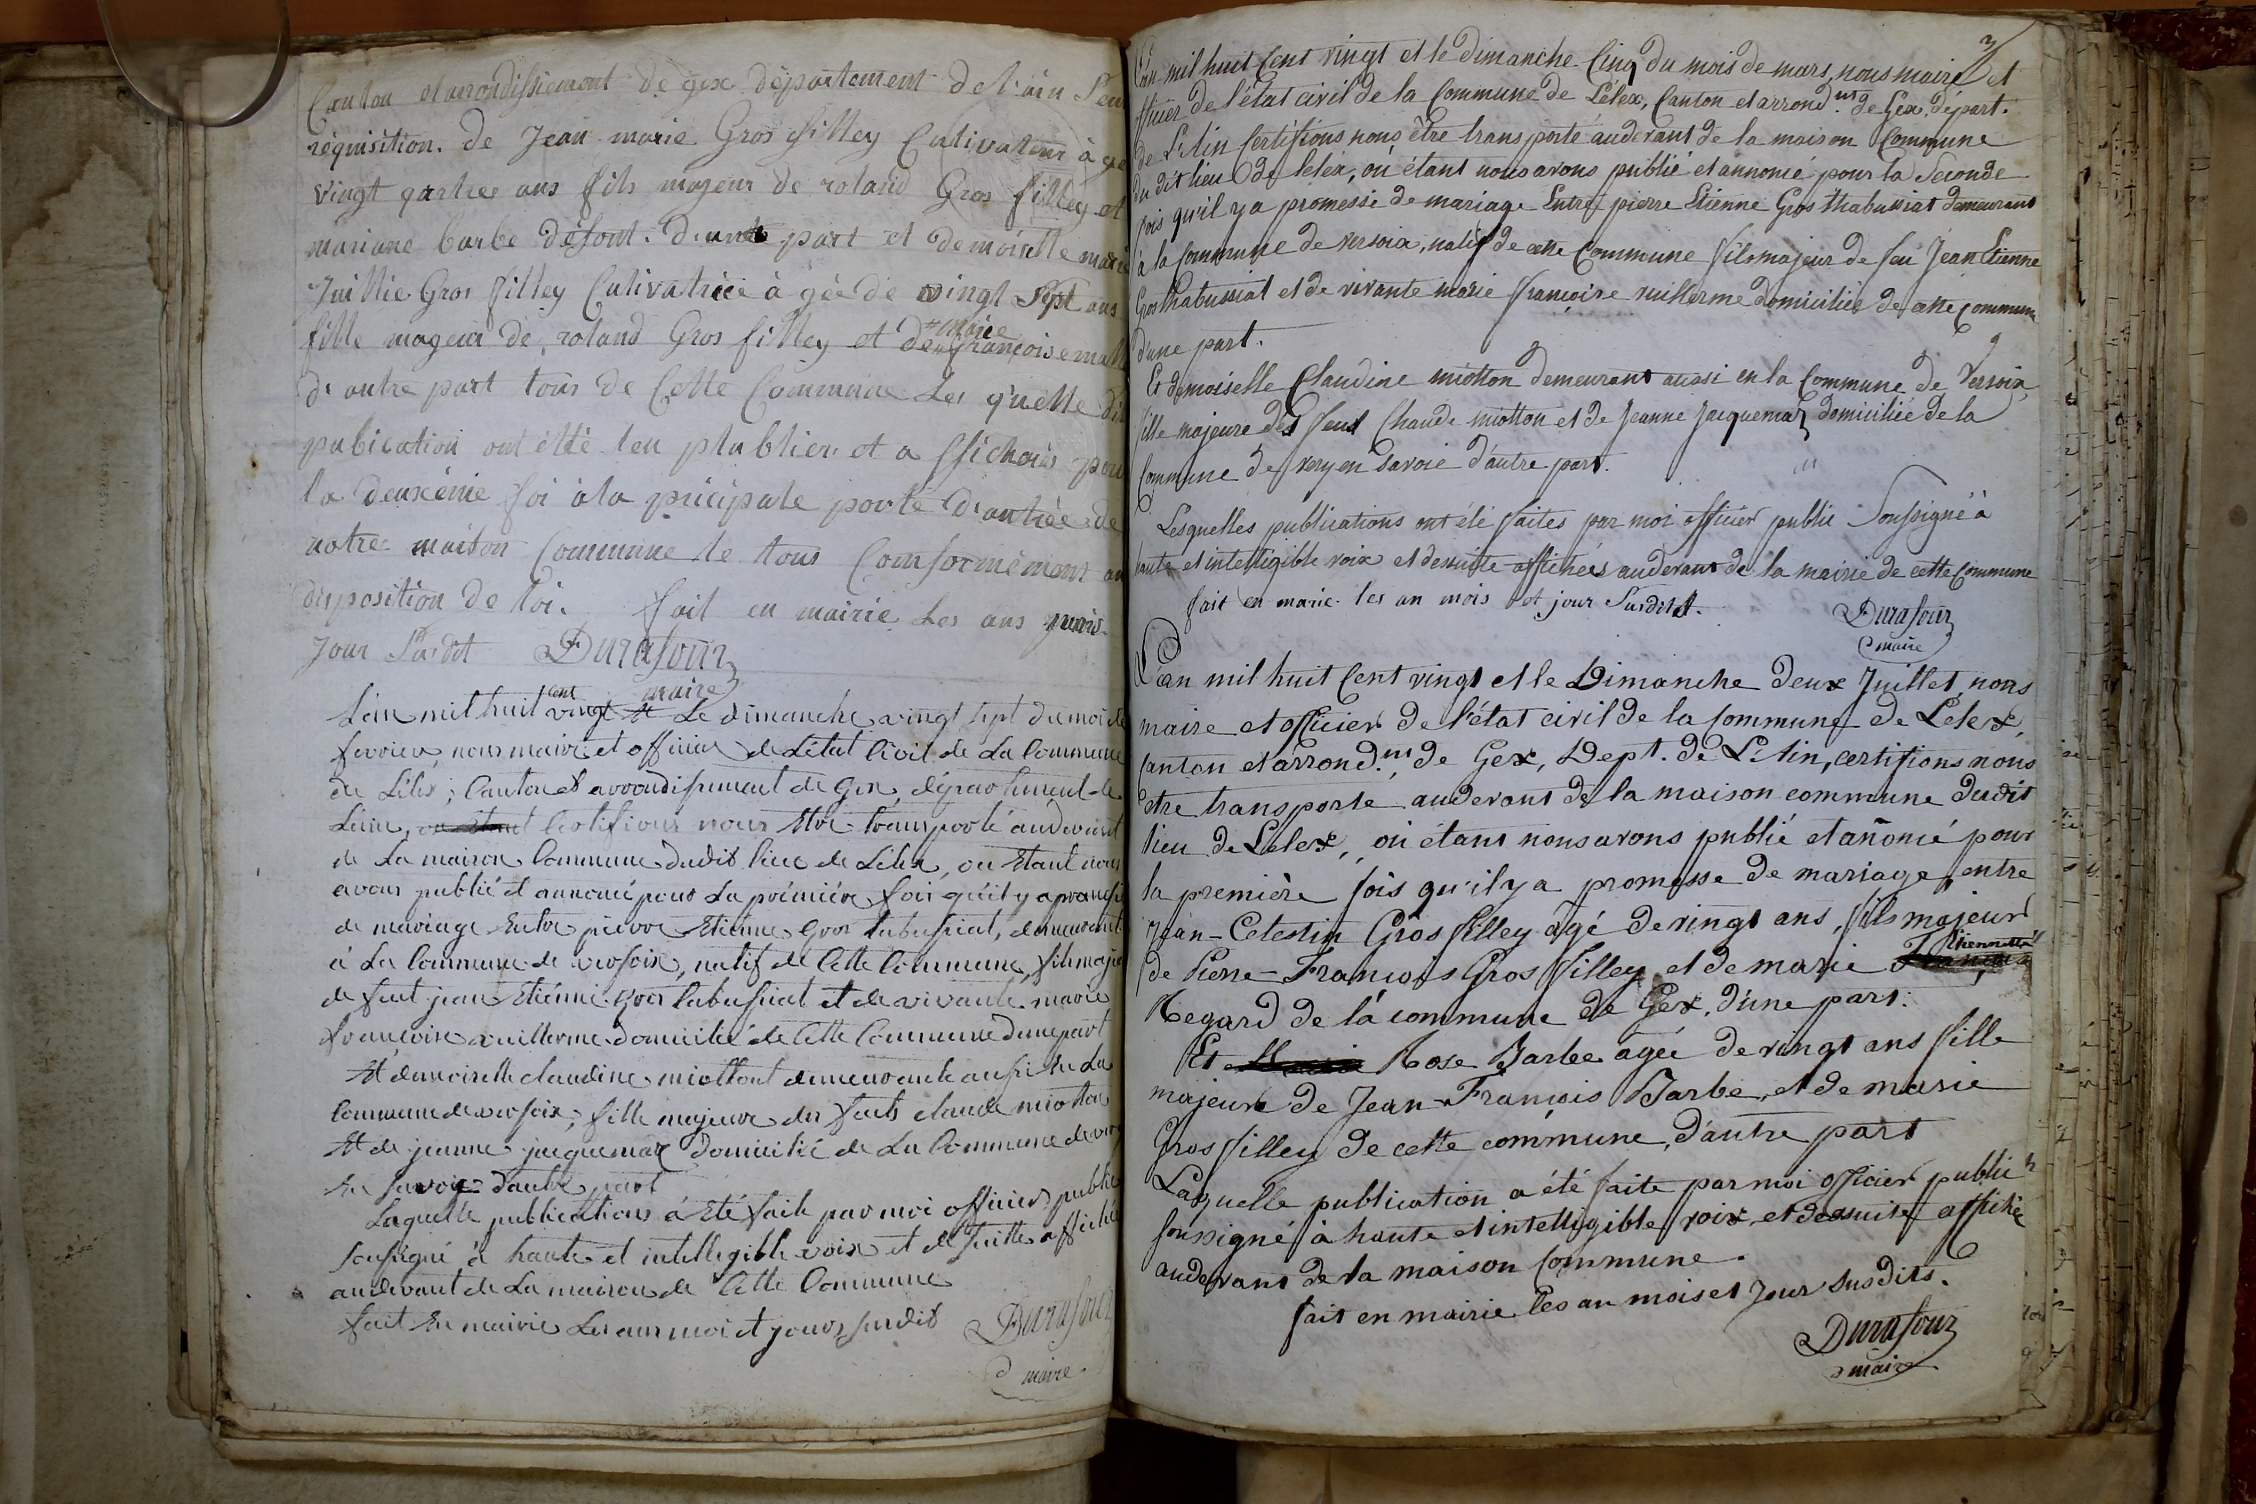 Canton et arrondissement de gex département de l'ain Sur
réquisition. de Jean marie Gros filley Cultivateur à gé
vingt quatres ans fils mageur de roland Gros filley et
mariane barbe défont. d'une part et demoiselle marie
Juillie Gros filley Cultivatrice à gée de vingt sept ans
fille mageur de roland Gros filley et de marie françoise
d'autre part tous de Cette Commune Les quelle
publication ont étté leu plublier et a ffichais pour
la deuxémie foi à la pricipale porte d'antrée de
notre maison Commune le tous Comformément au
disposition de loi. fait en mairie Les ans mois
Jour Sudit Durafour
maire
L'an mil huit cent vingt et Le dimanche vingt sept du moi de
fevrier, nous maire et officier de L'état Civil de La Commune
de Lélex, Canton et arrondissement de Gex, département de
L'ain, Certifions nous Etre transporté audevant
de La maison Commune dudit lieu de Lélex, ou Etant nous
avons publié et annoncé pour La première fois qu'il y a promesse
de mariage Entre pierre Etienne Gros tabussiat, demeurant
à La Commune de versoix, natif de Cette Commune, fils majeur
de feu jean Etienne Gros tabussiat et de vivante marie
françoise vuillerme domiciliée de Cette Commune d'une part
Et demoiselle claudine miottont demeurante aussi En La
Commune de versoix; fille majeure des feuts claude miotton
Et de jeanne jacquemaz domicilié de La Commune de very
En savoye d'autre part
Laquelle publications à Eté faite par moi officier public
soussigné à haute et intelligible voix et de suitte affichée
audevant de La maison de Cette Commune
fait En mairie Les an moi et jours susdit
Durafour
maire.
3
L'an mil huit Cent vingt et le dimanche Cinq du mois de mars, nous maire et
fficier de l'état civil de la Commune de Lélex, Canton et arrond.nt de Gex, départ.
de L'Ain Certifions nous être transporté au devant de la maison Commune
du dit lieu de lelex, où étant nous avons publié et annoncé pour la Seconde
fois qu'il y a promesse de mariage Entre pierre Etienne Gros thabussiat demeurant
à la Commune de versoix, natif de cette Commune fils majeur de feu Jean Etienne
Gros thabussiat et de vivante marie françoise vuillerme domiciliée de cette Commune
d'une part.
Et demoiselle Claudine miotton demeurant aussi en la Commune de Versoix,
fille majeure des feus Claude miotton et de Jeanne Jacquemaz domiciliée de la
Commune de very en Savoie d'autre part.
Lesquelles publications ont été faites par moi officier public Soussigné à
haute et intelligible voix et dessuite affichées audevant de la mairie de cette Commune
fait en marie les an mois et jour Susdits.
Durafour
maire
L'an mil huit Cent vingt et le Dimanche deux Juillet, nous
maire et officier de l'état civil de la Commune de Lelex,
Canton et arrond.nt de Gex, Dept. de L'Ain, certifions nous
être transporte audevant de la maison commune dudit
lieu de Lelex, où étant nous avons publié et añoncé pour
la première fois qu'il y a promesse de mariage, entre
Jean-Celestin Gros filley agé de vingt ans, fils majeur
de Pierre-François Gros filley et de marie henriette
Regard de la commune de Gex, d'une part.
Et Rose Barbe agée de vingt ans fille
majeure de Jean-François Barbe, et de marie
Gros filley de cette commune, d'autre part
Laquelle publication a été faite par moi officier public
soussigné à haute et intelligible voix et dessuite affichée
audevant de la maison Commune.
fait en mairie les an mois et Jour susdits.
Durafour
maire